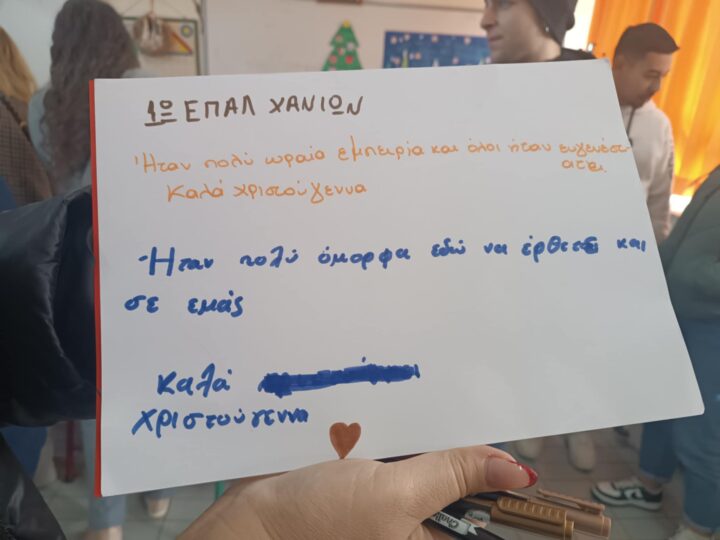 1ο ΕΠΑΛ ΧΑΝΙΩΝ
Ήταν πολύ ωραία εμπειρία και όλοι ήταν ευγενέστ
ατοι
Καλά χριστούγεννα
Ήταν πολύ όμορφα εδώ να έρθετε και
σε εμάς
Καλά
χριστούγεννα